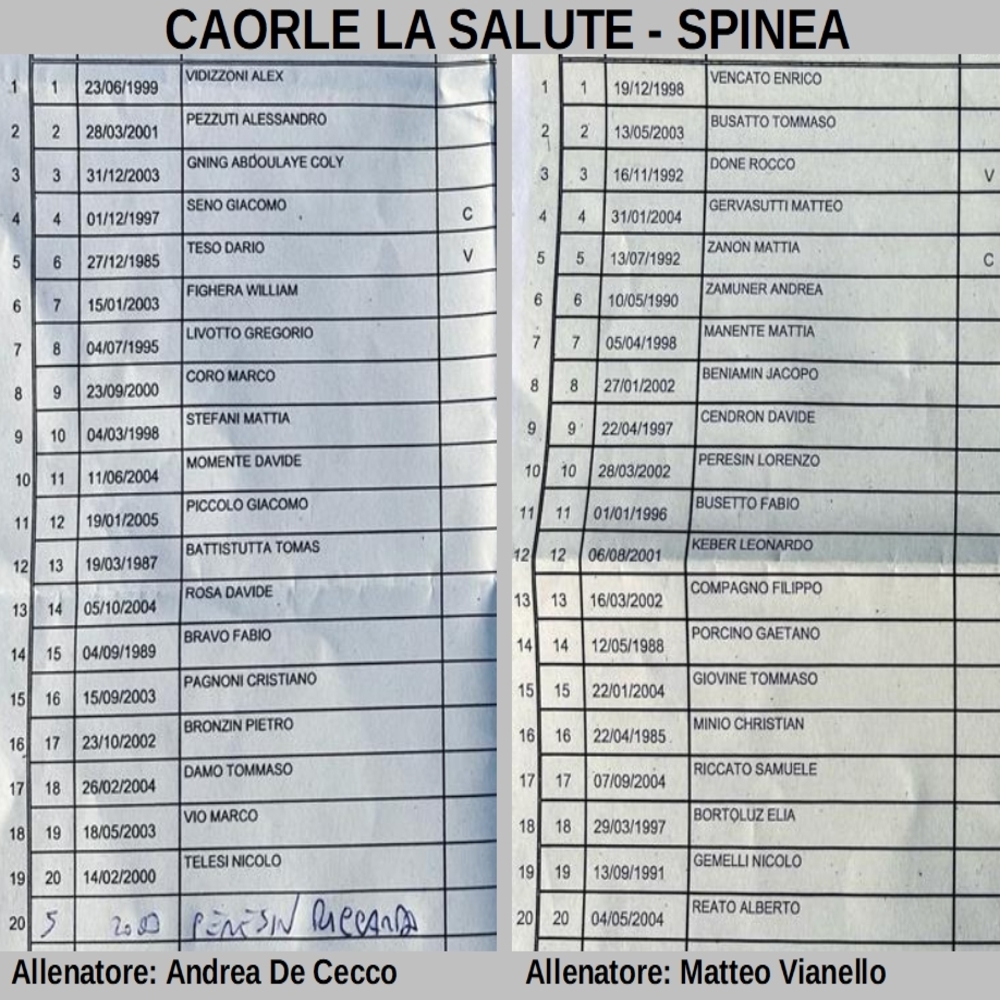 CAORLE LA SALUTE - SPINEA
1 1 23/06/1999 VIDIZZONI ALEX
2 2 28/03/2001 PEZZUTI ALESSANDRO
3 3 31/12/2003 GNING ABDOULAYE COLY
4 4 01/12/1997 SENO GIACOMO C
5 6 27/12/1985 TESO DARIO V
6 7 15/01/2003 FIGHERA WILLIAM
7 8 04/07/1995 LIVOTTO GREGORIO
8 9 23/09/2000 CORO MARCO
9 10 04/03/1998 STEFANI MATTIA
10 11 11/06/2004 MOMENTE DAVIDE
11 12 19/01/2005 PICCOLO GIACOMO
12 13 19/03/1987 BATTISTUTTA TOMAS
13 14 05/10/2004 ROSA DAVIDE
14 15 04/09/1989 BRAVO FABIO
15 16 15/09/2003 PAGNONI CRISTIANO
16 17 23/10/2002 BRONZIN PIETRO
17 18 26/02/2004 DAMO TOMMASO
18 19 18/05/2003 VIO MARCO
19 20 14/02/2000 TELESI NICOLO
20 5
Allenatore: Andrea De Cecco
1 1 19/12/1998 VENCATO ENRICO
2 2 13/05/2003 BUSATTO TOMMASO
3 3 16/11/1992 DONE ROCCO V
4 4 31/01/2004 GERVASUTTI MATTEO
5 5 13/07/1992 ZANON MATTIA C
6 6 10/05/1990 ZAMUNER ANDREA
7 7 05/04/1998 MANENTE MATTIA
8 8 27/01/2002 BENIAMIN JACOPO
9 9 22/04/1997 CENDRON DAVIDE
10 10 28/03/2002 PERESIN LORENZO
11 11 01/01/1996 BUSETTO FABIO
12 12 06/08/2001 KEBER LEONARDO
13 13 16/03/2002 COMPAGNO FILIPPO
14 14 12/05/1988 PORCINO GAETANO
15 15 22/01/2004 GIOVINE TOMMASO
16 16 22/04/1985 MINIO CHRISTIAN
17 17 07/09/2004 RICCATO SAMUELE
18 18 29/03/1997 BORTOLUZ ELIA
19 19 13/09/1991 GEMELLI NICOLO
20 20 04/05/2004 REATO ALBERTO
Allenatore: Matteo Vianello